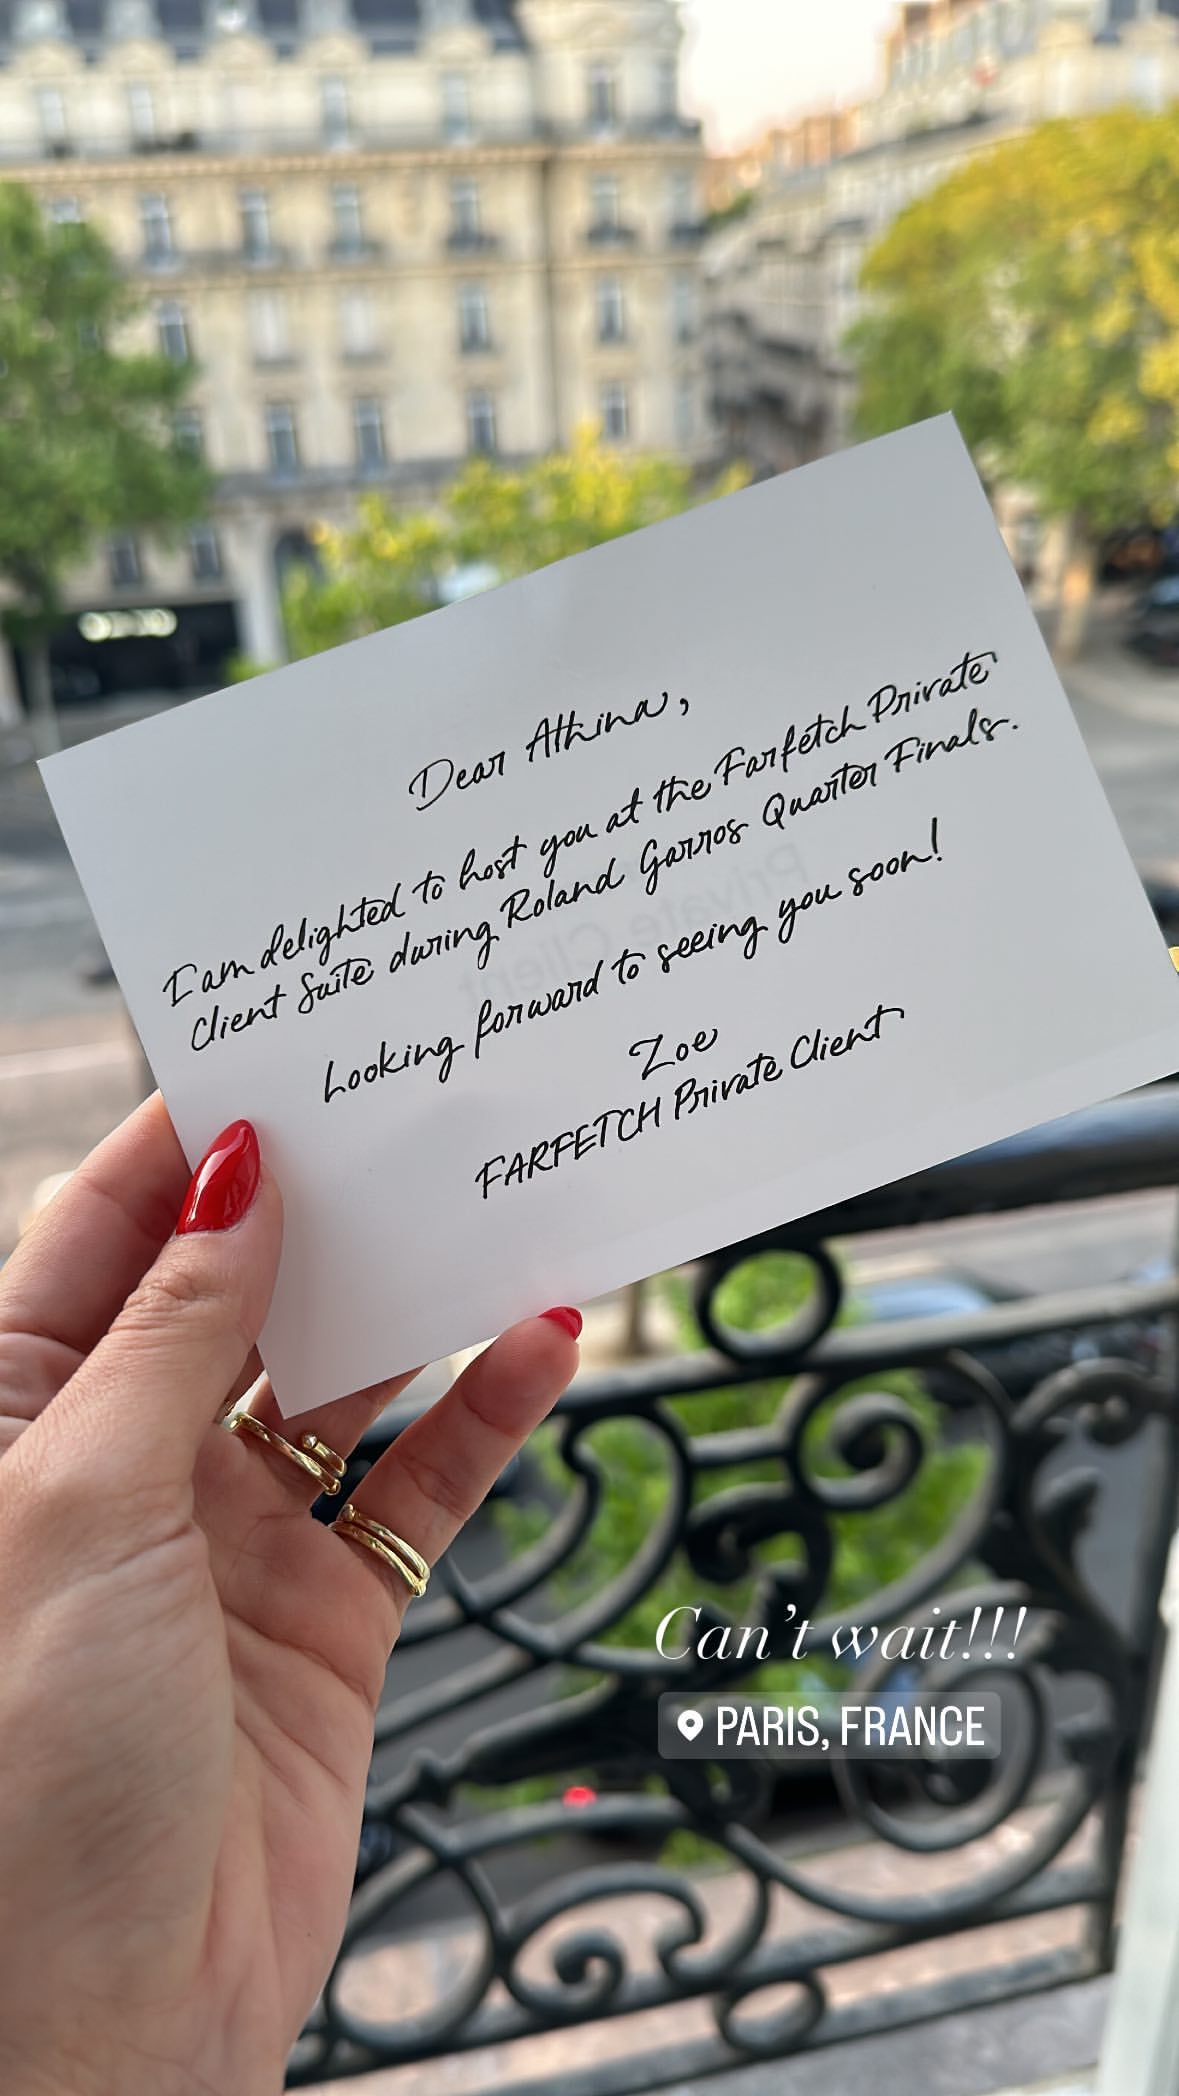 Dear Athina,
I am delighted to host you at the Farfetch Private
Client Suite during Roland Garros Quarter Finals.
Looking forward to seeing you soon!
Zoe
FARFETCH Private Client
Private
Client
Can't wait!!!
PARIS, FRANCE